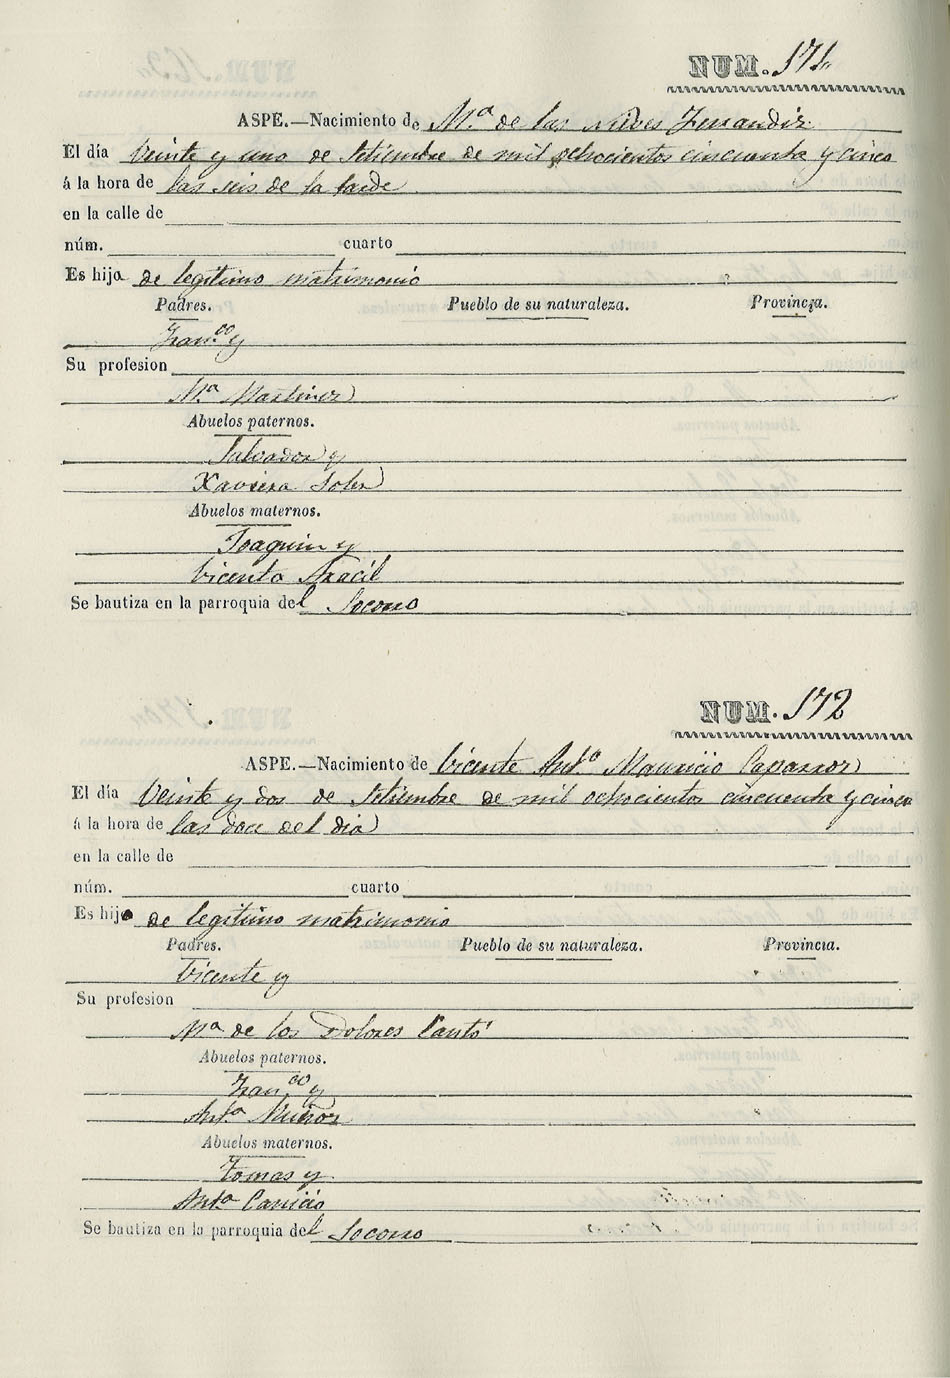 NUM. 171.
ASPE.—Nacimiento de Mª de las Nieves Ferrandiz
El día Veinte y uno de Setiembre de mil ochocientos cincuenta y cinco
á la hora de las seis de la tarde
en la calle de
núm. cuarto
Es hija de legitimo matrimonio
Padres. Pueblo de su naturaleza. Provincia.
Franco y
Su profesion
Mª Martinez
Abuelos paternos.
Salvador y
Xaviera Soler
Abuelos maternos.
Joaquin y
Vicenta Aracil
Se bautiza en la parroquia del Socorro
NUM. 172
ASPE.—Nacimiento de Vicente Antº Mauricio Caparros
El día Veinte y dos de Setiembre de mil ochocientos cincuenta y cinco
á la hora de las doce del dia
en la calle de
núm. cuarto
Es hijo de legitimo matrimonio
Padres. Pueblo de su naturaleza. Provincia.
Vicente y
Su profesion
Mª de los Dolores Cantó
Abuelos paternos.
Franco y
Antª Muñoz
Abuelos maternos.
Tomas y
Antª Cañizio
Se bautiza en la parroquia del Socorro